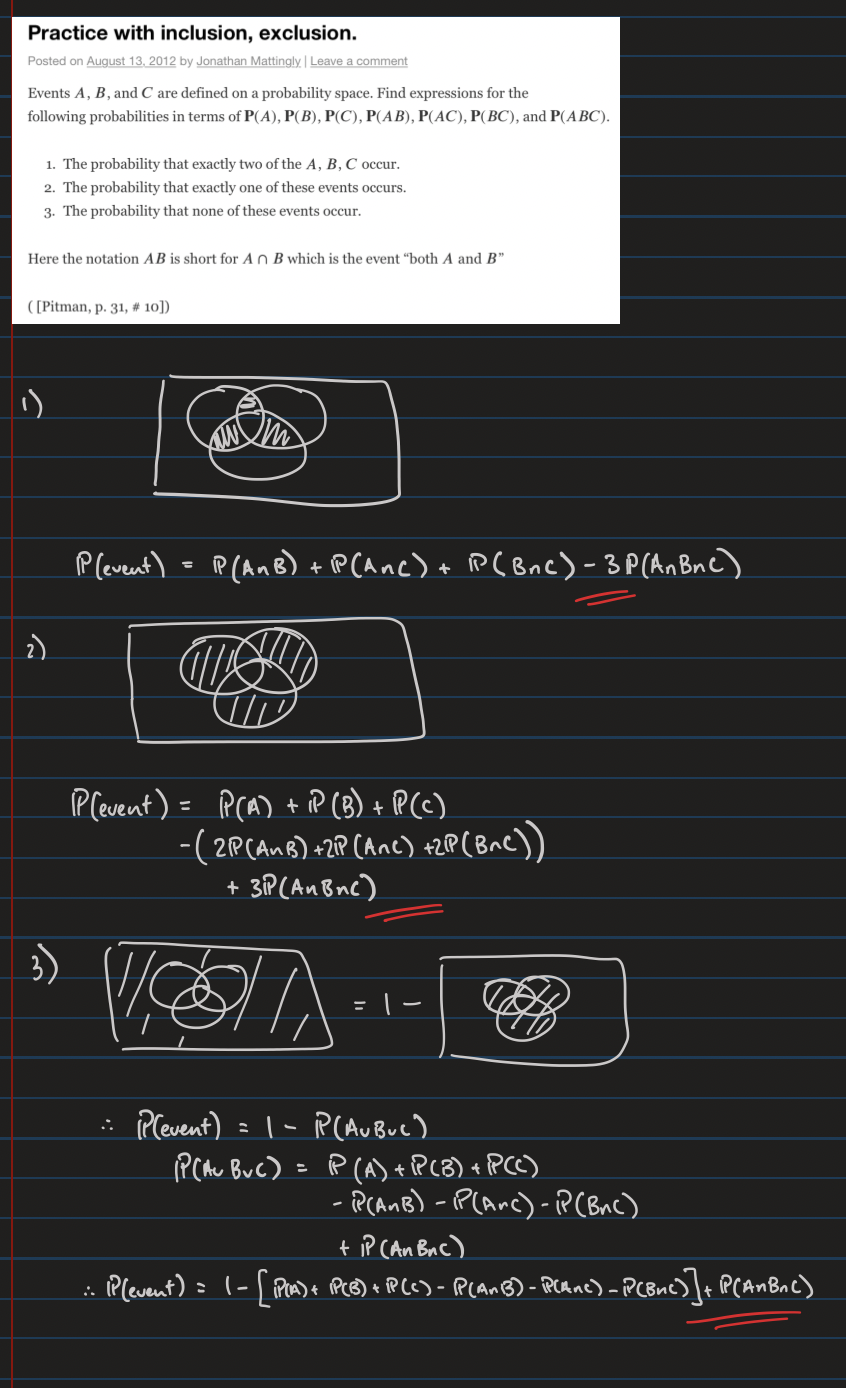 Practice with inclusion, exclusion.
Posted on August 13, 2012 by Jonathan Mattingly | Leave a comment
Events A, B, and C are defined on a probability space. Find expressions for the
following probabilities in terms of P(A), P(B), P(C), P(AB), P(AC), P(BC), and P(ABC).
1. The probability that exactly two of the A, B, C occur.
2. The probability that exactly one of these events occurs.
3. The probability that none of these events occur.
Here the notation AB is short for A ∩ B which is the event “both A and B”
( [Pitman, p. 31, # 10])
1)
ℙ(event) = ℙ(A∩B) + ℙ(A∩C) + ℙ(B∩C) - 3ℙ(A∩B∩C)
2)
ℙ(event) = ℙ(A) + ℙ(B) + ℙ(C)
-(2ℙ(A∩B) + 2ℙ(A∩C) + 2ℙ(B∩C))
+ 3ℙ(A∩B∩C)
3)
= 1 -
∴ ℙ(event) = 1 - ℙ(A∪B∪C)
ℙ(A∪B∪C) = ℙ(A) + ℙ(B) + ℙ(C)
- ℙ(A∩B) - ℙ(A∩C) - ℙ(B∩C)
+ ℙ(A∩B∩C)
∴ ℙ(event) = 1 - [ℙ(A) + ℙ(B) + ℙ(C) - ℙ(A∩B) - ℙ(A∩C) - ℙ(B∩C)] + ℙ(A∩B∩C)